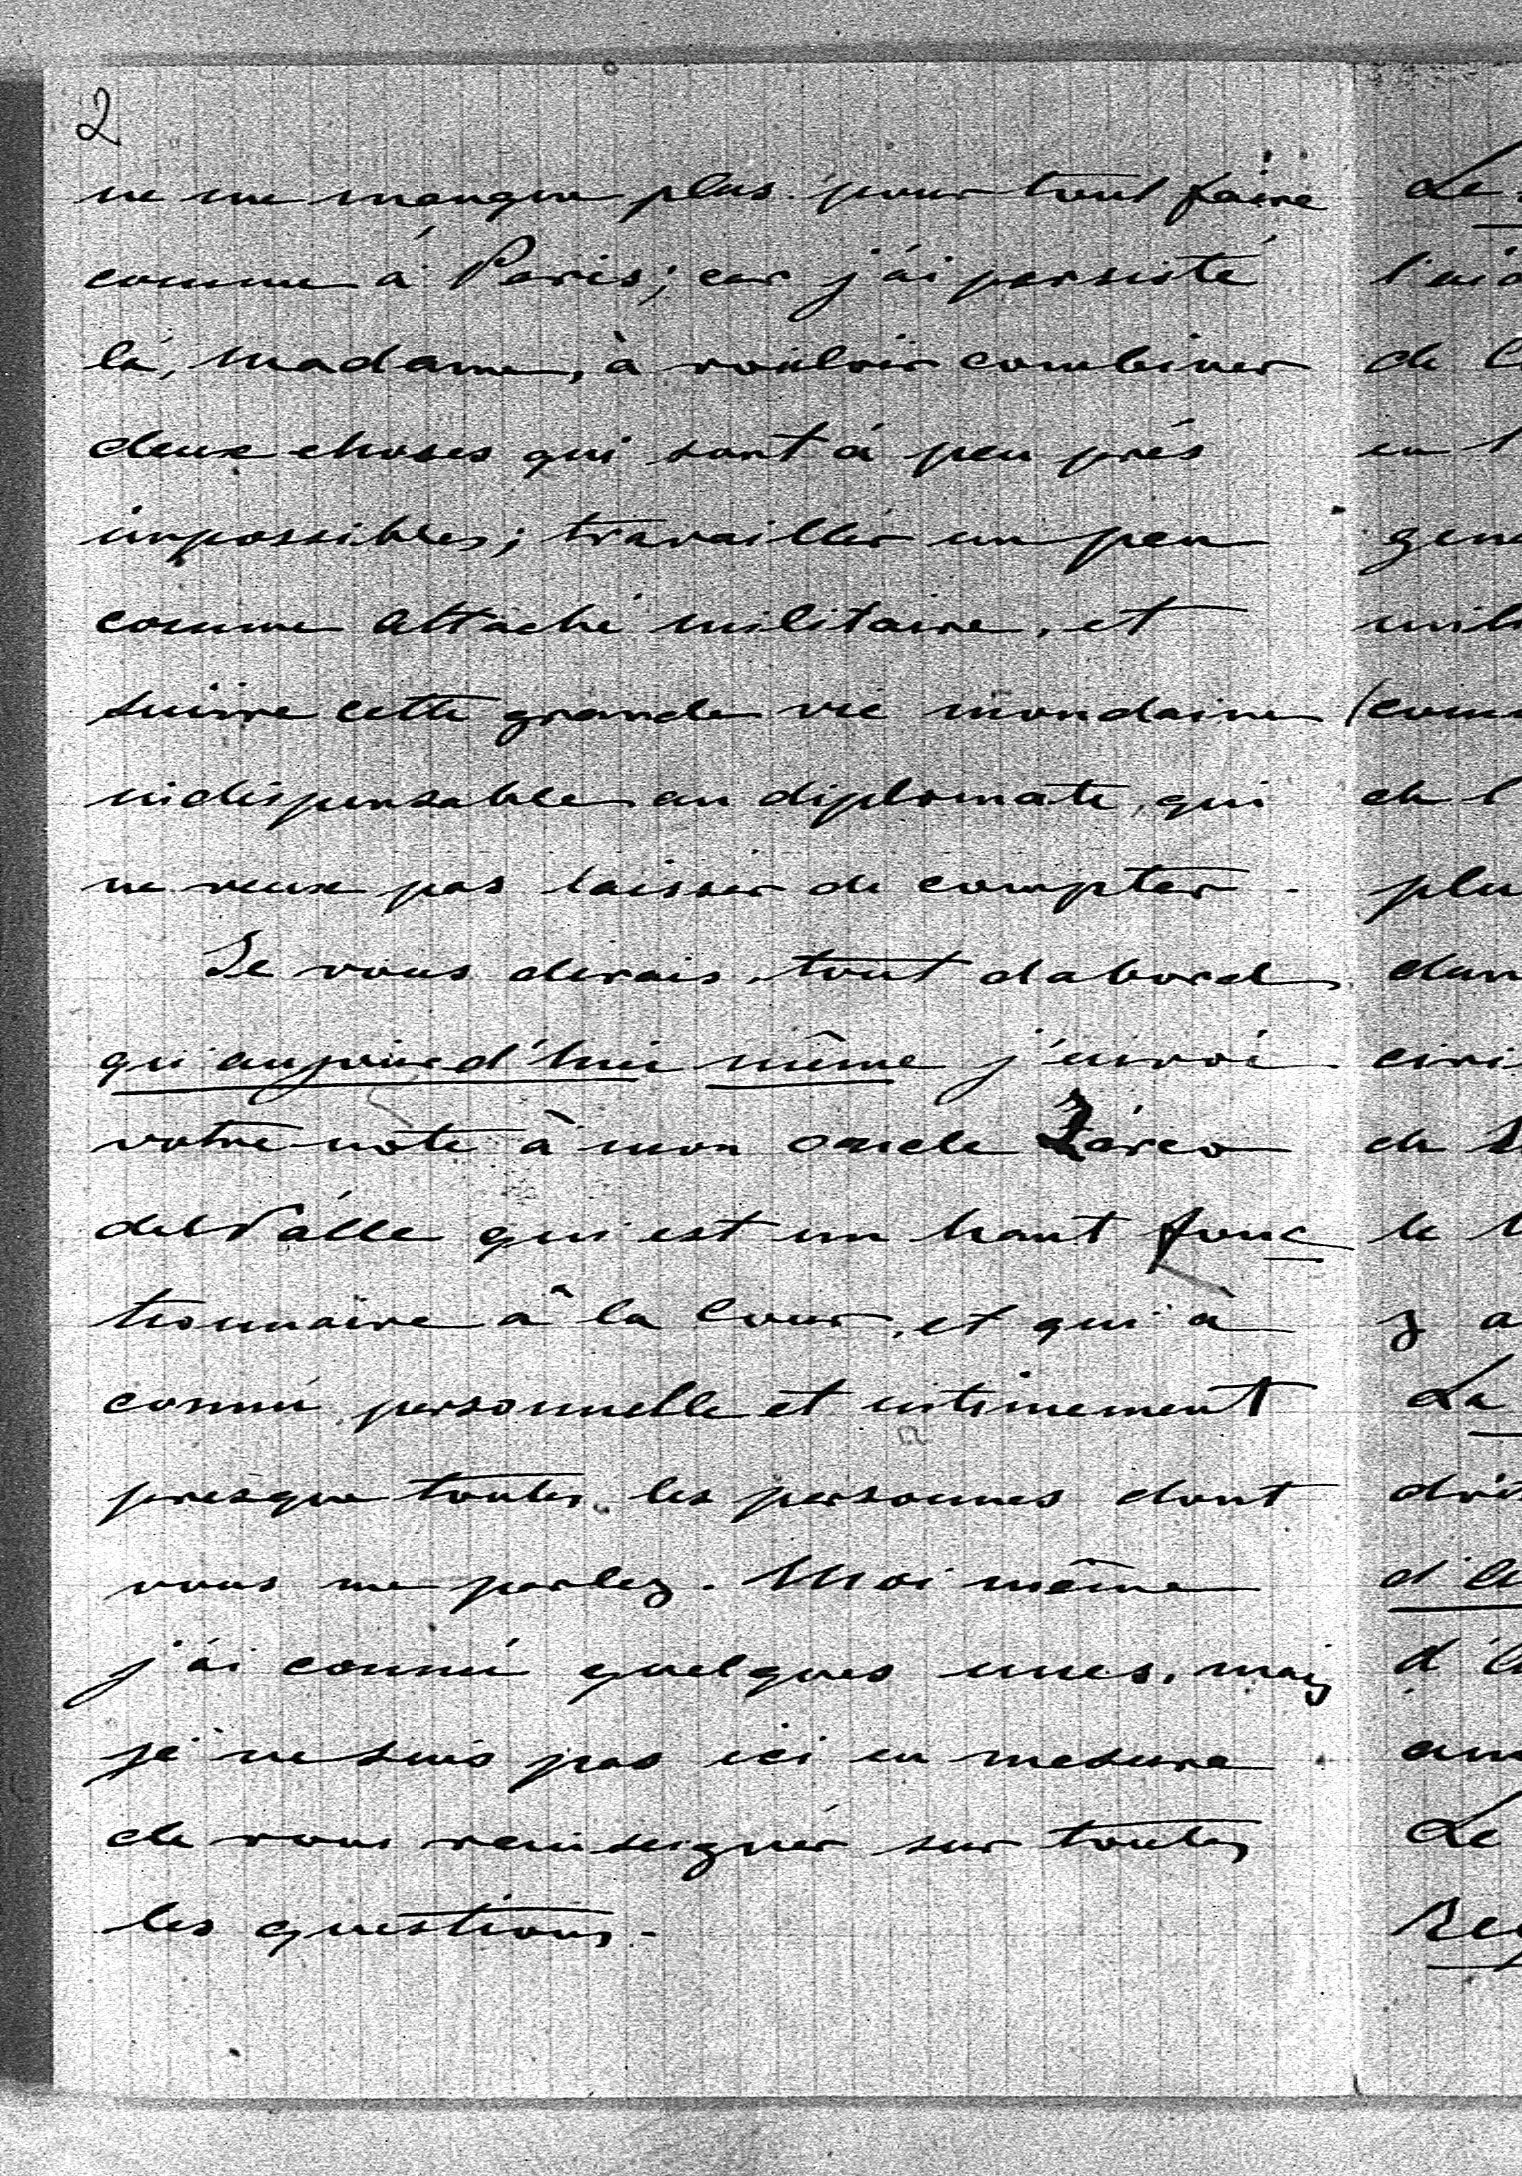 2
ne me manque plus pour tout faire
comme á Paris; car j'ai persisté
lá, madame, à vouloir combiner
deux choses qui sont á peu prés
impossibles; travailler un peu
comme attaché militaire, et
suivre cette grande vie mondaine
indispensable au diplomate, qui
ne veux pas laisser de compter.
Je vous dirais, tout dabord
qu'aujourd'hui même j'envoi
votre note à mon oncle Zárco
del Válle qui est un haut fonc
tionnaire à la Cour, et qui à
connú personnelle et intimement
presque toutes les personnes dont
vous me parlez. Moi même
j'ai connú quelques unes, mais
je ne suis pas ici en mesure
de vous reinseigner sur toutes
les questions.
Le
de
en
plu
dan
de
le
y a
La
Le